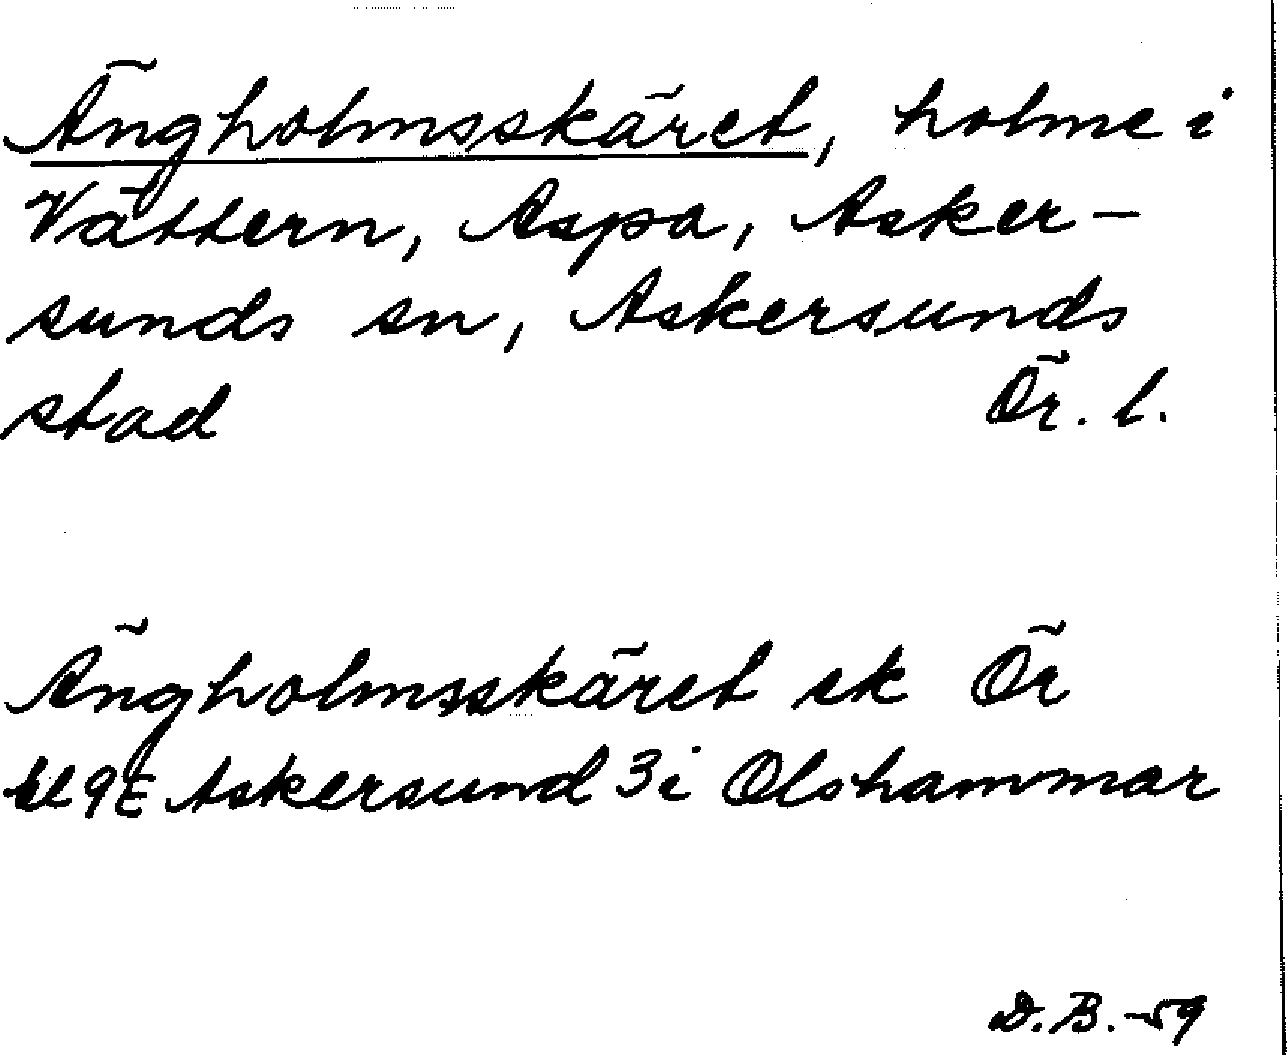 Ängholmsskäret, holme i
Vättern, Aspa, Asker-
sunds sn, Askersunds
stad Ör. l.
Ängholmsskäret ek Ör
bl 9E Askersund 3i Olshammar
D.B.-59